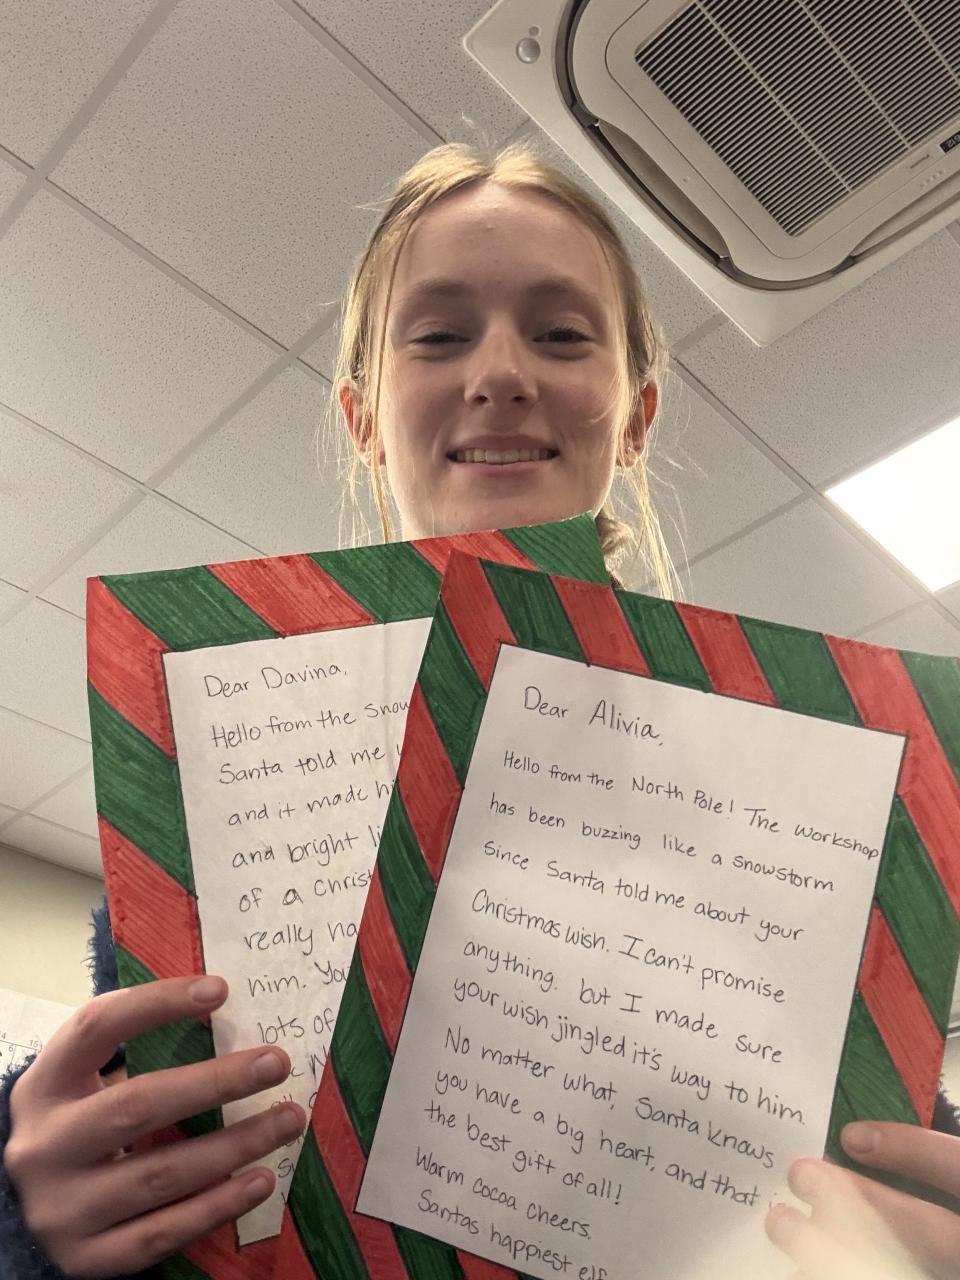 Dear Davina,
Hello from the snow
Santa told me
and it made hi
and bright li
of a Christ
really ha
him. You
lots of
Dear Alivia,
Hello from the North Pole! The workshop
has been buzzing like a snowstorm
since Santa told me about your
Christmas wish. I can't promise
anything. but I made sure
your wish jingled it's way to him.
No matter what, Santa knows
you have a big heart, and that
the best gift of all!
Warm cocoa cheers.
Santas happiest elf